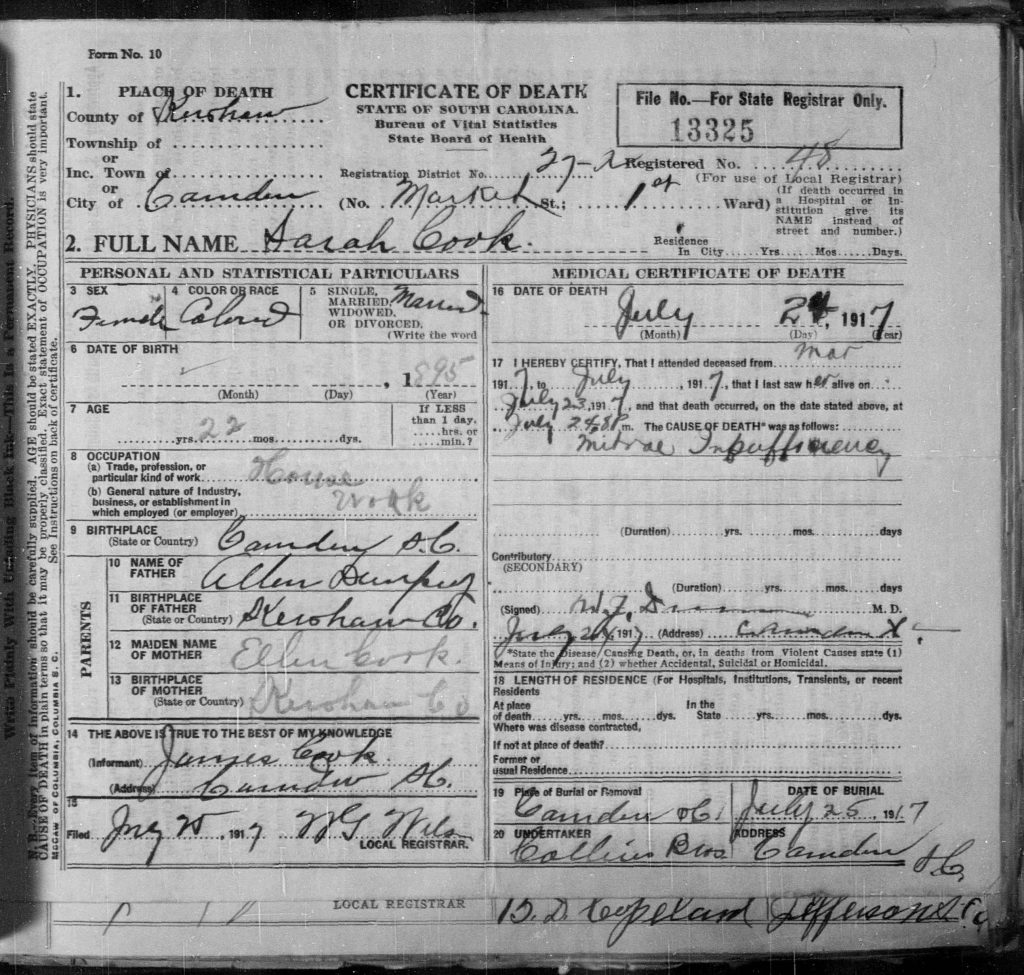 Form No. 10
1. PLACE OF DEATH
County of Kershaw
Township of
or
Inc. Town of
or
City of Camden
CERTIFICATE OF DEATH
STATE OF SOUTH CAROLINA.
Bureau of Vital Statistics
State Board of Health
File No.—For State Registrar Only.
13325
Registration District No. 27-
Registered No. 48
(For use of Local Registrar)
(No. Market St.; 1st Ward)
(If death occurred in
a Hospital or In-
stitution give its
NAME instead of
street and number.)
2. FULL NAME Sarah Cook.
Residence
In City Yrs. Mos. Days.
PERSONAL AND STATISTICAL PARTICULARS
3 SEX
Female
4 COLOR OR RACE
Colored
5 SINGLE,
MARRIED, Married
WIDOWED,
OR DIVORCED,
(Write the word
6 DATE OF BIRTH
, 1895
(Month) (Day) (Year)
7 AGE
22 yrs. mos. dys.
If LESS
than 1 day,
hrs. or
min.?
8 OCCUPATION
(a) Trade, profession, or
particular kind of work House
Work
(b) General nature of Industry,
business, or establishment in
which employed (or employer)
9 BIRTHPLACE
(State or Country) Camden S.C.
PARENTS
10 NAME OF
FATHER Allen
11 BIRTHPLACE
OF FATHER
(State or Country) Kershaw Co.
12 MAIDEN NAME
OF MOTHER Ellen Cook.
13 BIRTHPLACE
OF MOTHER
(State or Country) Kershaw Co
14 THE ABOVE IS TRUE TO THE BEST OF MY KNOWLEDGE
(Informant) James Cook
(Address) Camden S.C.
15
Filed July 25 1917 WG
LOCAL REGISTRAR.
MEDICAL CERTIFICATE OF DEATH
16 DATE OF DEATH
July 24, 1917
(Month) (Day) (Year)
17 I HEREBY CERTIFY, That I attended deceased from Mar
1917, to July, 1917, that I last saw her alive on
July 23, 1917, and that death occurred, on the date stated above, at
July 24, 8 P. m. The CAUSE OF DEATH* was as follows:
Mitral Insufficiency
(Duration) yrs. mos. days
Contributory
(SECONDARY)
(Duration) yrs. mos. days
(Signed) M. D.
July 1917 (Address) Camden
*State the Disease Causing Death, or, in deaths from Violent Causes state (1)
Means of Injury; and (2) whether Accidental, Suicidal or Homicidal.
18 LENGTH OF RESIDENCE (For Hospitals, Institutions, Transients, or recent
Residents
At place
of death yrs. mos. dys.
In the
State yrs. mos. dys.
Where was disease contracted,
If not at place of death?
Former or
usual Residence
19 Place of Burial or Removal
Camden S.C.
DATE OF BURIAL
July 25 1917
20 UNDERTAKER
Collins Bros
ADDRESS
Camden S.C.
LOCAL REGISTRAR
B. D. Copeland Jefferson
Write Plainly With Unfading Black Ink—This is a Permanent Record.
N. B.—Every item of information should be carefully supplied. AGE should be stated EXACTLY. PHYSICIANS should state
CAUSE OF DEATH in plain terms so that it may be properly classified. Exact statement of OCCUPATION is very important.
See Instructions on back of certificate.
McCAW OF COLUMBIA, COLUMBIA S. C.